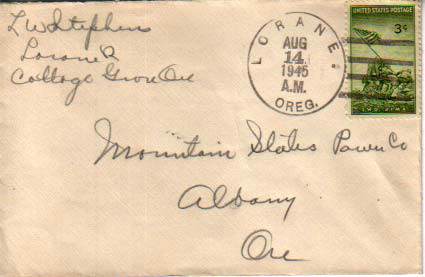 L W Stephens
Lorane R
Cottage Grove Ore
LORANE.
AUG
14
1945
A.M.
OREG.
UNITED STATES POSTAGE
3¢
Mountain States Power Co
Albany
Ore